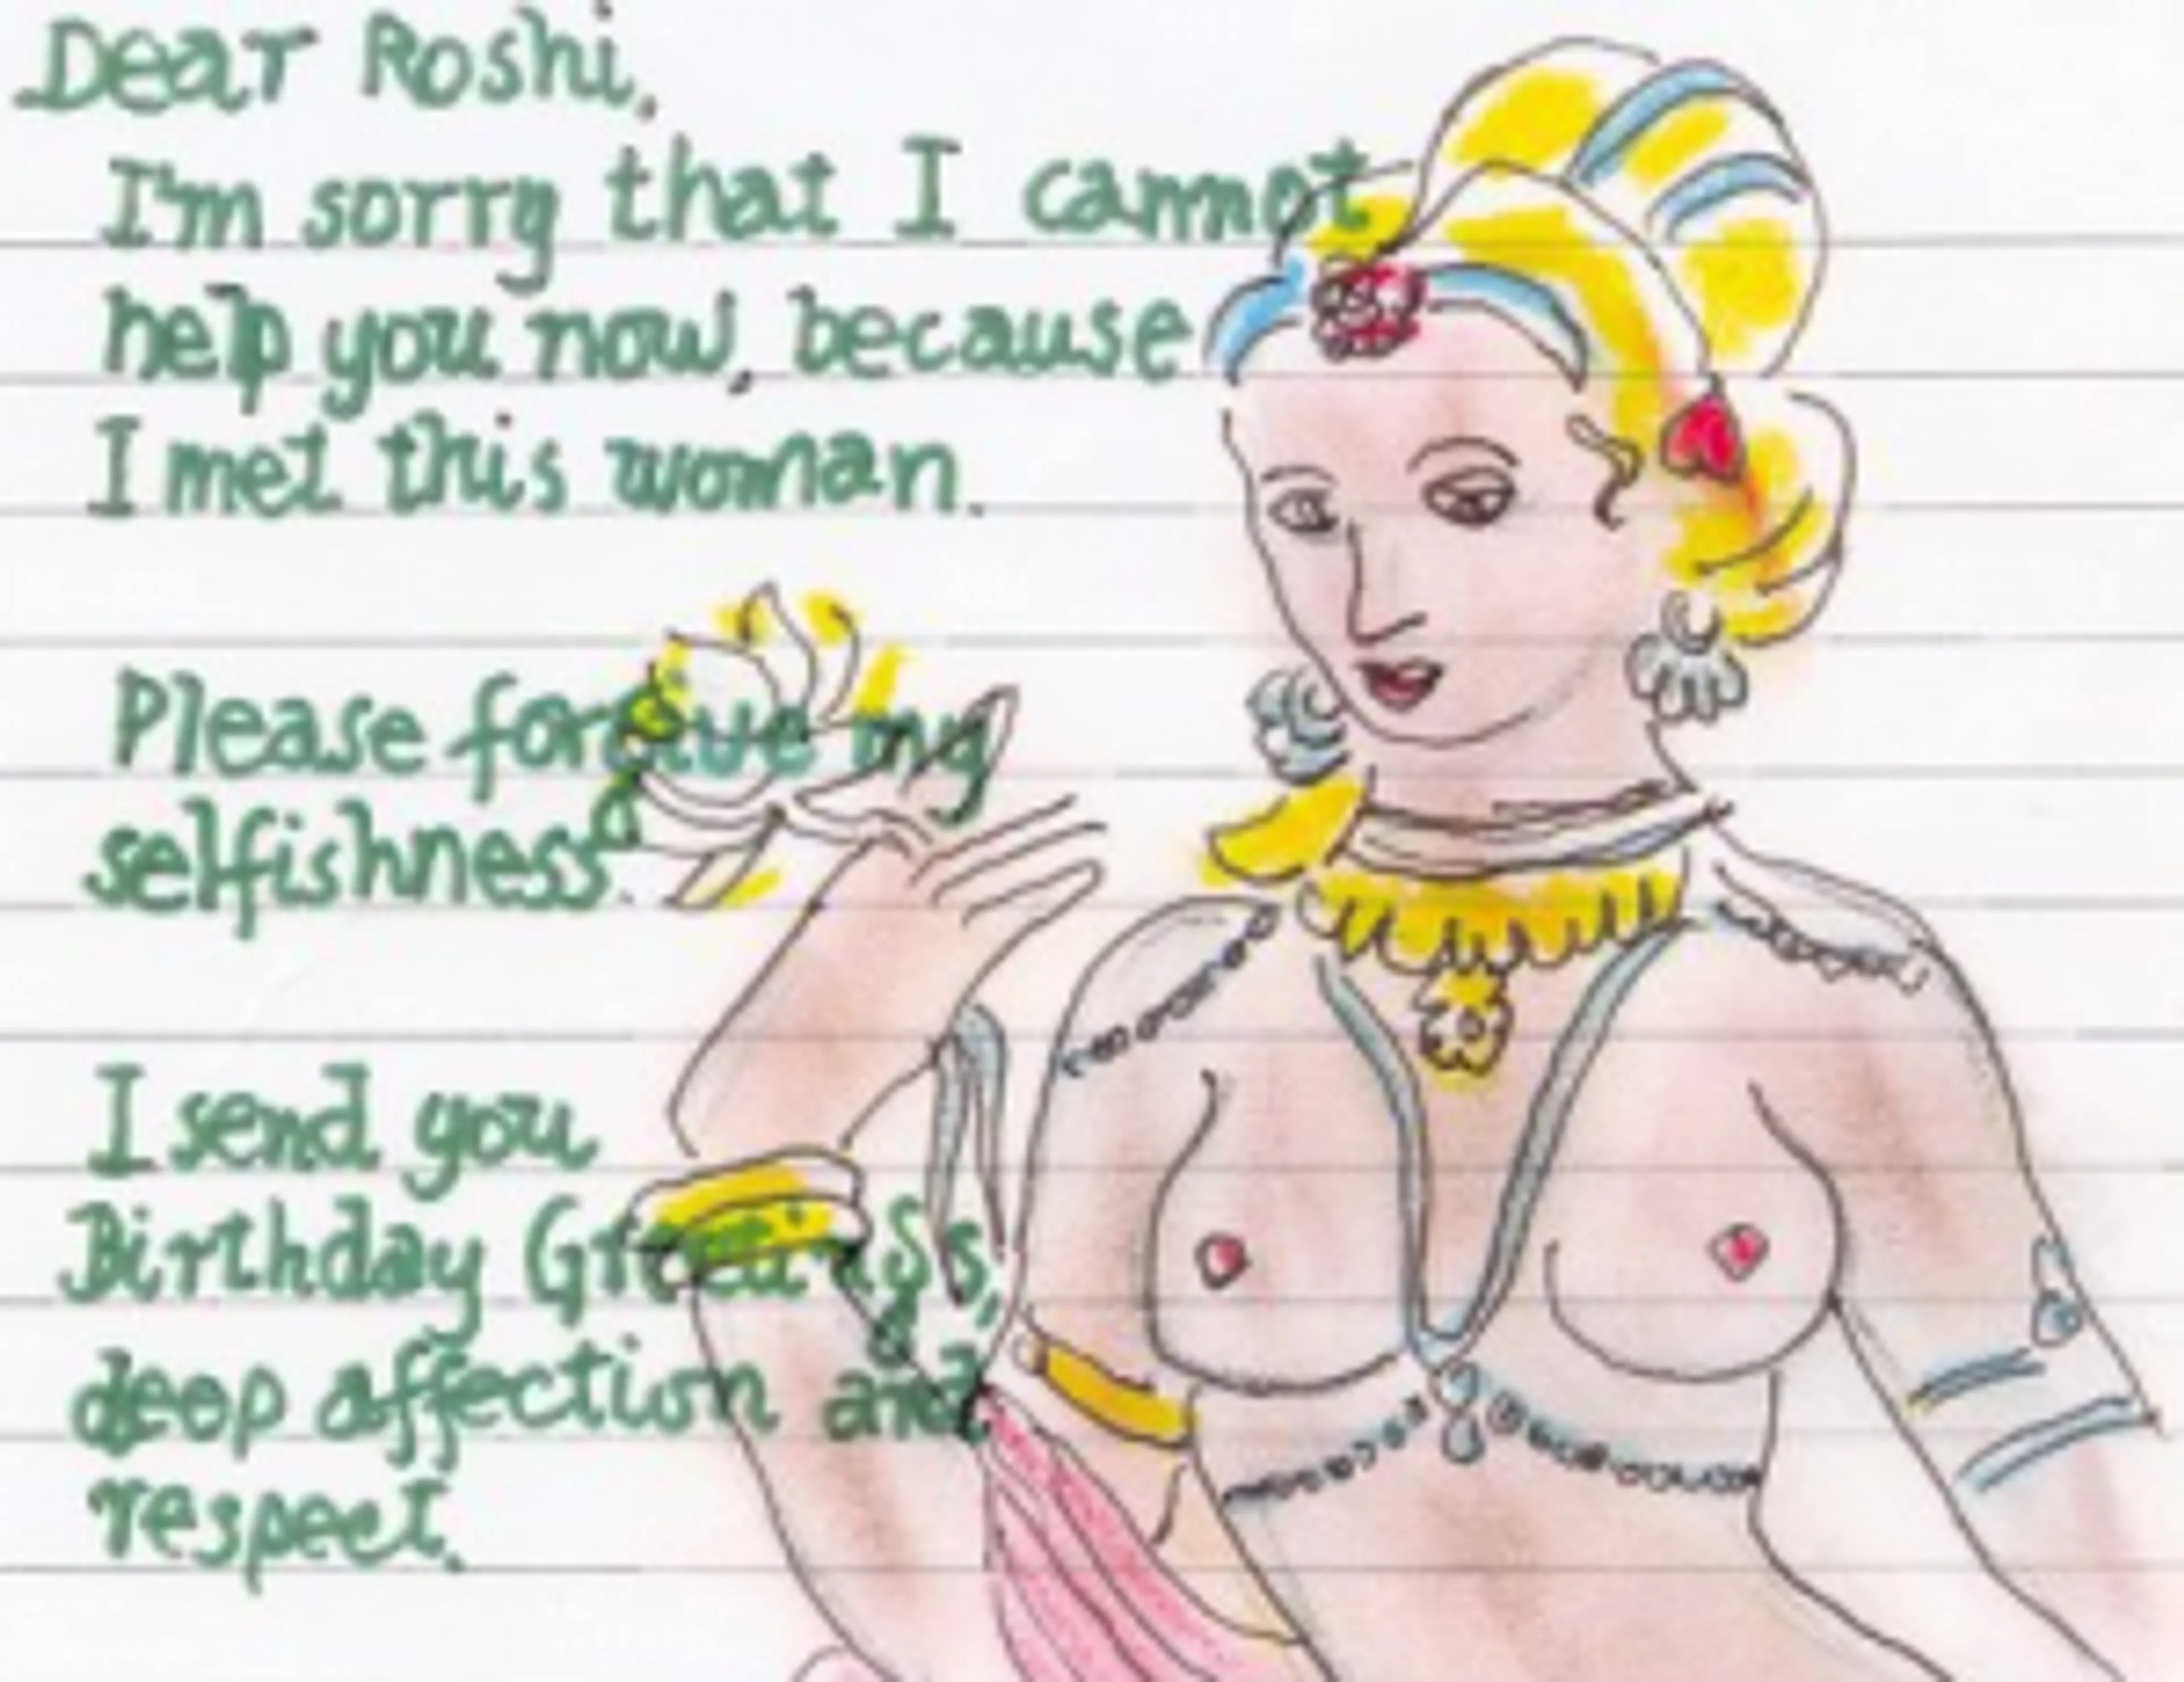 Dear Roshi,
I'm sorry that I cannot
help you now, because
I met this woman.
Please forgive my
selfishness.
I send you
Birthday Greetings,
deep affection and
respect.